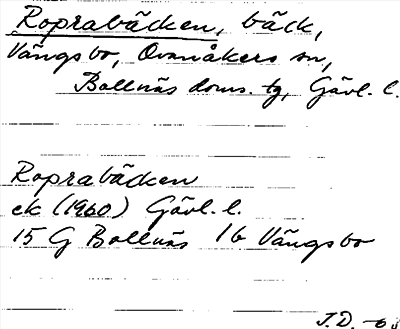 Roprabäcken, bäck,
Vängsbo, Ovanåkers sn,
Bollnäs doms. tg, Gävl. l.
Roprabäcken
ek (1960) Gävl. l.
15 G Bollnäs 1b Vängsbo
J.D.